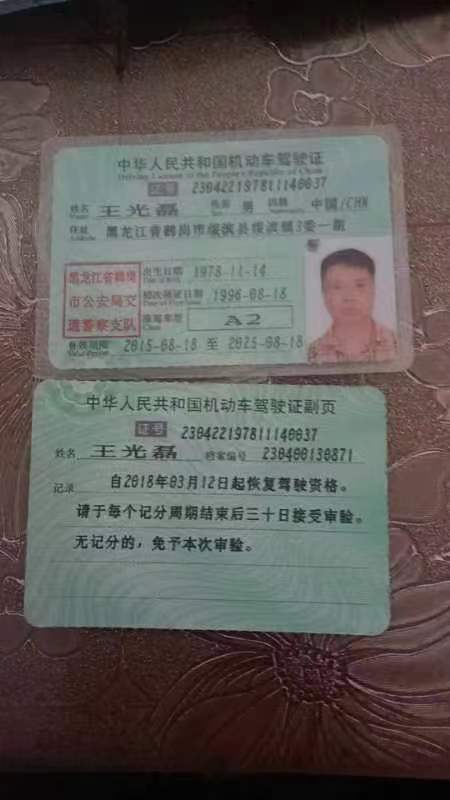 中华人民共和国机动车驾驶证
Driving License of the People's Republic of China
证号 230422197811140037
姓名 王光磊 性别 男 国籍 中国/CHN
Name Sex Nationality
住址 黑龙江省鹤岗市绥滨县绥滨镇3委一组
Address
黑龙江省鹤岗
市公安局交
通警察支队
出生日期 1978-11-14
Date of Birth
初次领证日期 1996-08-18
Date of First Issue
准驾车型 A2
Class
有效期限 2015-08-18 至 2025-08-18
Valid Period
中华人民共和国机动车驾驶证副页
证号 230422197811140037
姓名 王光磊 档案编号 230400130871
记录 自2018年03月12日起恢复驾驶资格。
请于每个记分周期结束后三十日接受审验。
无记分的，免予本次审验。